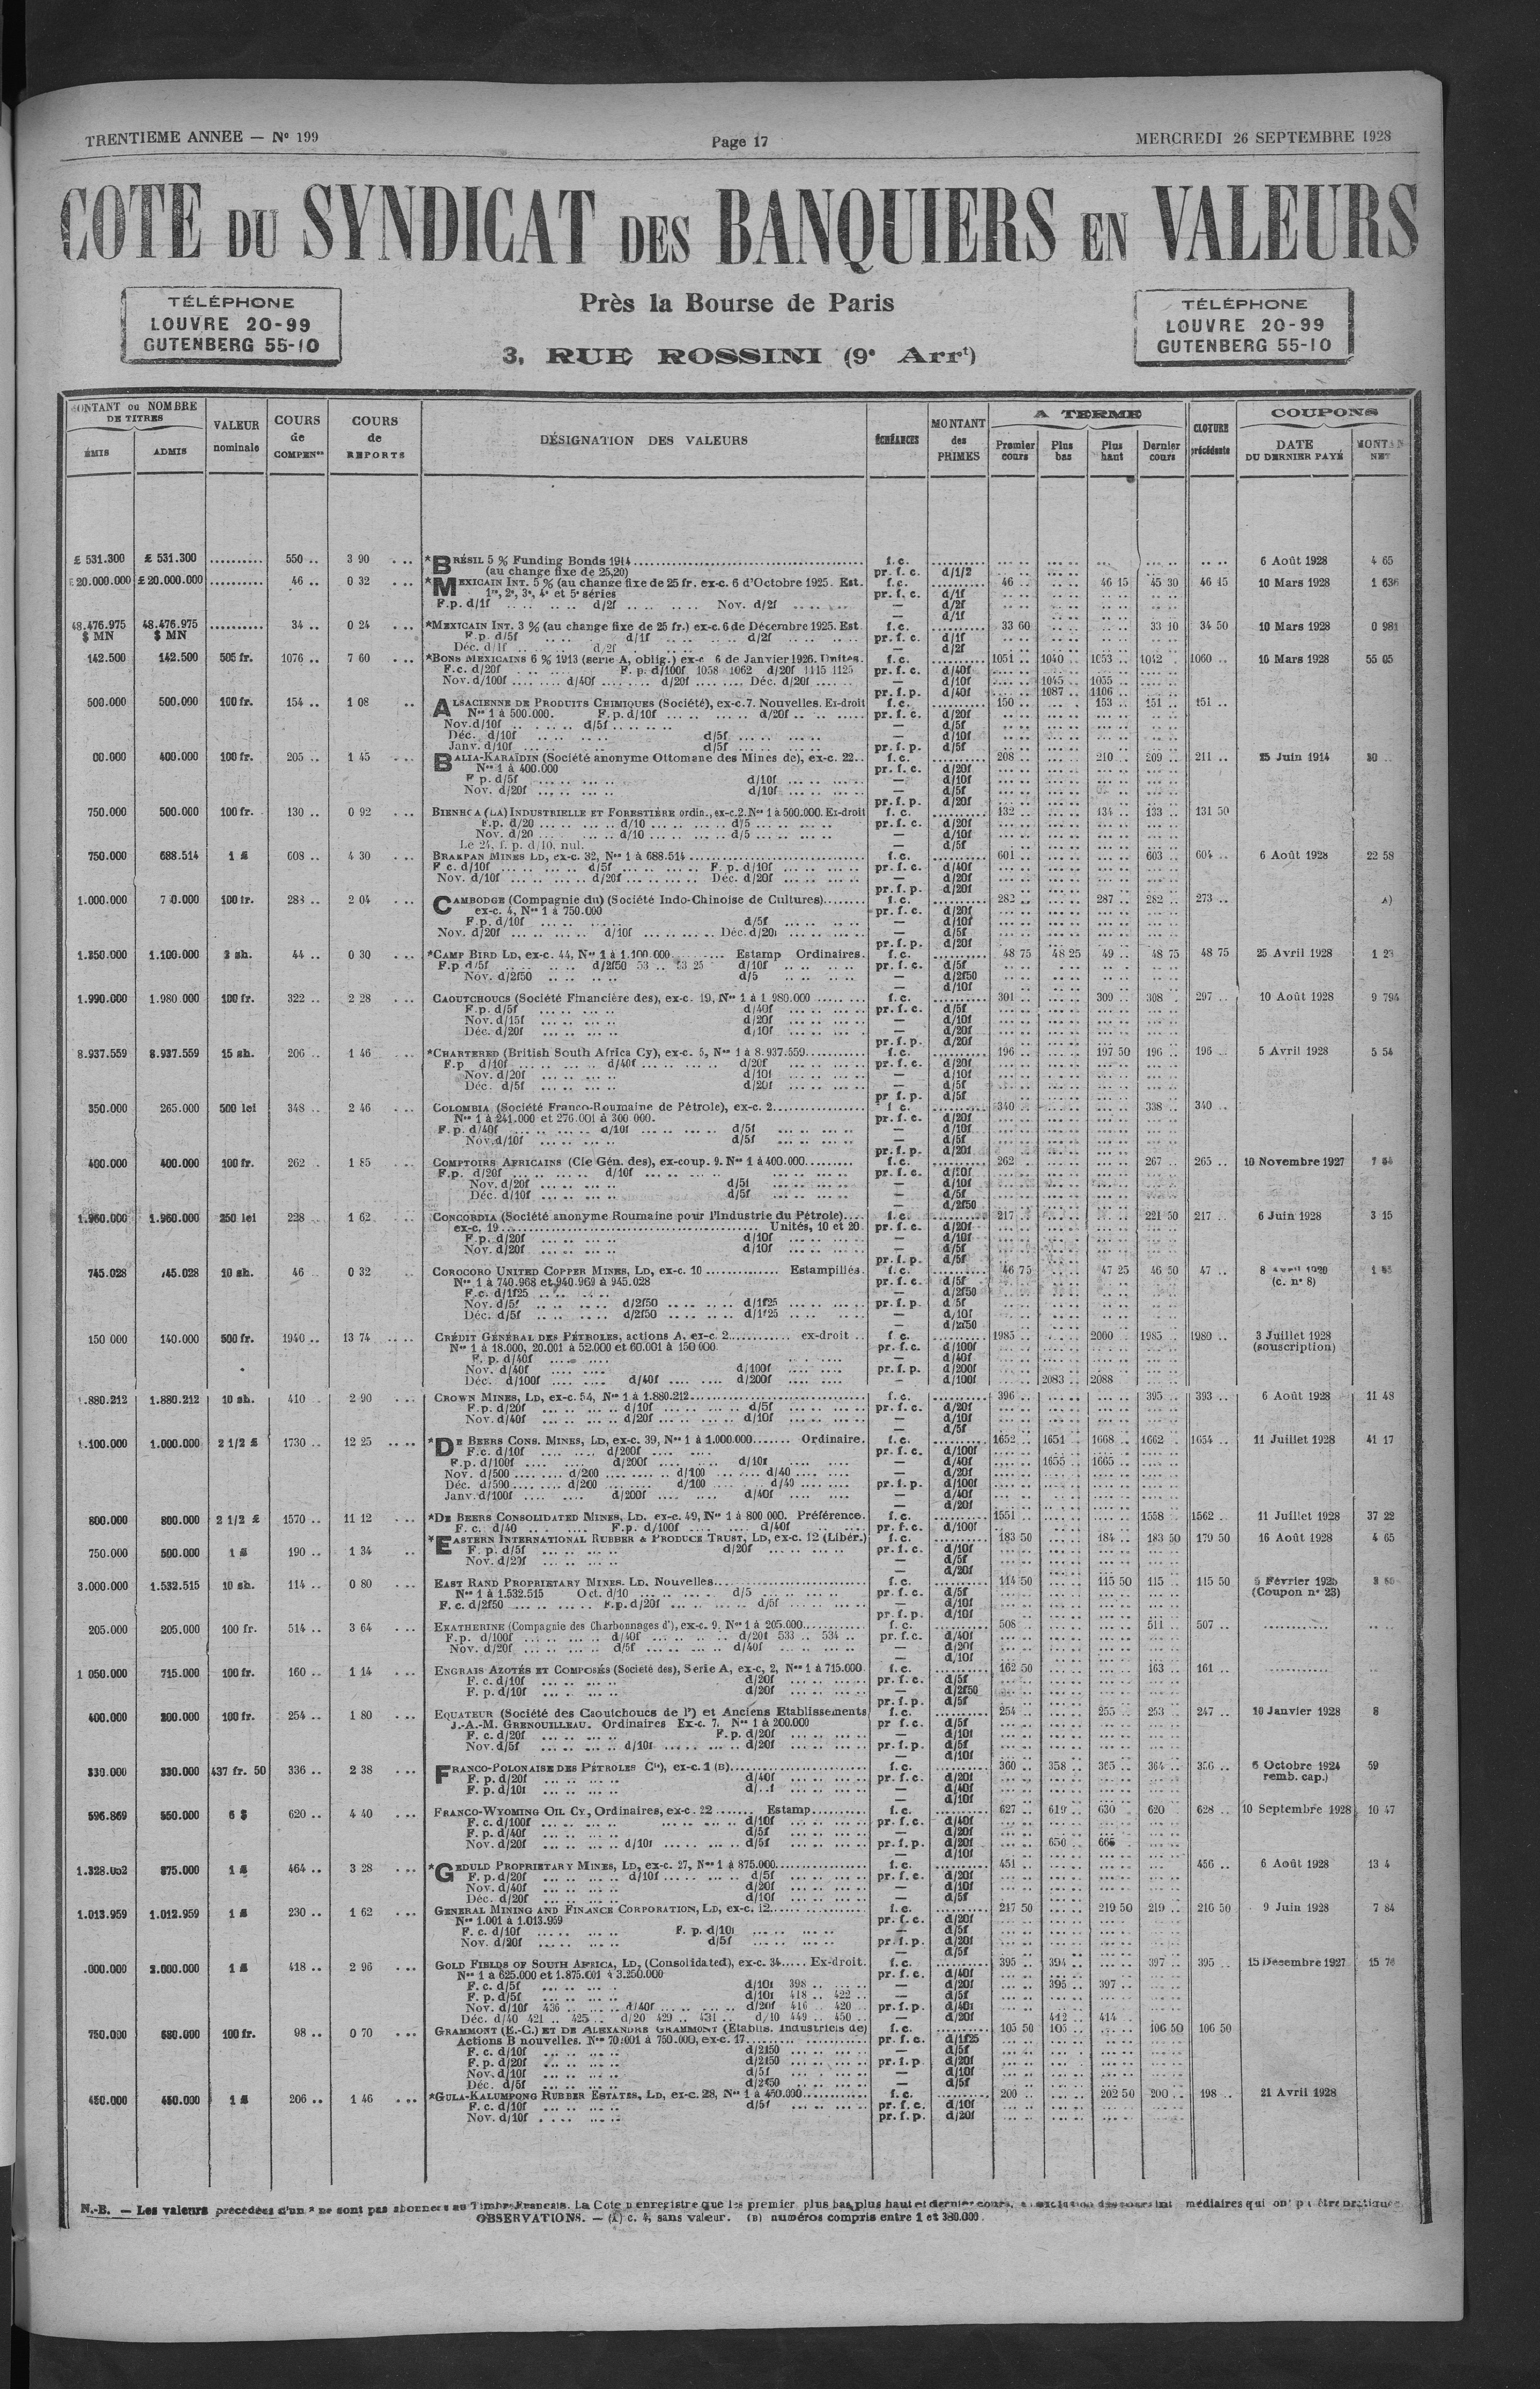 TRENTIEME ANNEE — N° 199
Page 17
MERCREDI 26 SEPTEMBRE 1928
COTE DU SYNDICAT DES BANQUIERS EN VALEURS
TÉLÉPHONE
LOUVRE 20-99
GUTENBERG 55-10
Près la Bourse de Paris
3, RUE ROSSINI (9e Arrt)
TÉLÉPHONE
LOUVRE 20-99
GUTENBERG 55-10
MONTANT ou NOMBRE DE TITRES
ÉMIS ADMIS
VALEUR nominale
COURS de COMPENon
COURS de REPORTS
DÉSIGNATION DES VALEURS
ÉCHÉANCES
MONTANT des PRIMES
A TERME
Premier cours Plus bas Plus haut Dernier cours
CLOTURE précédente
COUPONS
DATE DU DERNIER PAYÉ
NET
£ 531.300 £ 531.300 .......... 550 .. 3 90 *BRÉSIL 5 % Funding Bonds 1914 f. c. 6 Août 1928 4 65
(au change fixe de 25,20) pr. f. c. d/1/2
£ 20.000.000 £ 20.000.000 .......... 46 .. 0 32 *MEXICAIN INT. 5 % (au change fixe de 25 fr. ex-c. 6 d'Octobre 1925. Est. f. c. 46 .. 46 15 45 30 46 15 10 Mars 1928 1 636
1re, 2e, 3e, 4e et 5e séries pr. f. c. d/1f
F.p. d/1f d/2f Nov. d/2f — d/2f
— d/1f
48.476.975 $ MN 48.476.975 $ MN .......... 34 .. 0 24 *MEXICAIN INT. 3 % (au change fixe de 25 fr.) ex-c. 6 de Décembre 1925. Est. f. c. 33 60 33 10 34 50 10 Mars 1928 0 981
F.p. d/5f d/1f d/2f pr. f. c. d/1f
Déc. d/1f d/2f — d/2f
142.500 142.500 505 fr. 1076 .. 7 60 *BONS MEXICAINS 6 % 1913 (serie A, oblig.) ex-c 6 de Janvier 1926. Unités. f. c. 1051 .. 1040 .. 1053 .. 1042 1060 .. 10 Mars 1928 55 05
F.c. d/20f F. p. d/100f 1058 1062 d/20f 1115 1125 pr. f. c. d/40f
Nov. d/100f d/40f d/20f Déc. d/20f — d/10f 1045 .. 1055 ..
pr. f. p. d/40f 1087 .. 1106 ..
500.000 500.000 100 fr. 154 .. 1 08 ALSACIENNE DE PRODUITS CHIMIQUES (Société), ex-c.7. Nouvelles. Ex-droit f. c. 150 .. 153 .. 151 .. 151 ..
Nos 1 à 500.000. F.p. d/10f d/20f pr. f. c. d/20f
Nov. d/10f d/5f — d/5f
Déc. d/10f d/5f — d/10f
Janv. d/10f d/5f pr. f. p. d/5f
00.000 400.000 100 fr. 205 .. 1 45 BALIA-KARAÏDIN (Société anonyme Ottomane des Mines de), ex-c. 22.. f. c. 208 .. 210 .. 209 .. 211 .. 25 Juin 1914
Nos 1 à 400.000 pr. f. c. d/20f
F p. d/5f d/10f — d/10f
Nov. d/20f d/10f — d/5f
pr. f. p. d/20f
750.000 500.000 100 fr. 130 .. 0 92 BIENHOA (LA) INDUSTRIELLE ET FORESTIÈRE ordin., ex-c.2. Nos 1 à 500.000. Ex-droit f. c. 132 .. 134 .. 133 .. 131 50
F.p. d/20 d/10 d/5 pr. f. c. d/20f
Nov. d/20 d/10 d/5 — d/10f
Le 24, f. p. d/10, nul. — d/5f
750.000 688.514 1 £ 608 .. 4 30 BRAKPAN MINES LD, ex-c. 32, Nos 1 à 688.514 f. c. 601 .. 603 .. 604 .. 6 Août 1928 22 58
F c. d/10f d/5f F. p. d/10f pr. f. c. d/40f
Nov. d/10f d/20f Déc. d/20f — d/20f
pr. f. p. d/20f
1.000.000 100 fr. 283 .. 2 04 CAMBODGE (Compagnie du) (Société Indo-Chinoise de Cultures) f. c. 282 .. 287 .. 282 .. 273 ..
ex-c. 4, Nos 1 à 750.000 pr. f. c. d/20f
F.p. d/10f d/5f — d/10f
Nov. d/20f d/10f Déc. d/20f — d/5f
pr. f. p. d/20f
1.250.000 1.100.000 2 sh. 44 .. 0 30 *CAMP BIRD LD, ex-c. 44, Nos 1 à 1.100.000 Estamp Ordinaires. f. c. 48 75 48 25 49 .. 48 75 48 75 25 Avril 1928
F.p d/5f d/2f50 53 .. 53 25 d/10f pr. f. c. d/5f
Nov. d/2f50 d/5 — d/2f50
— d/10f
1.990.000 1.980.000 100 fr. 322 .. 2 28 CAOUTCHOUCS (Société Financière des), ex-c. 19, Nos 1 à 1 980.000 f. c. 301 .. 309 .. 308 .. 297 .. 10 Août 1928 9 794
F.p. d/5f d/40f pr. f. c. d/5f
Nov. d/15f d/20f — d/10f
Déc. d/20f d/10f — d/20f
pr. f. p. d/20f
8.937.559 8.937.559 15 sh. 206 .. 1 46 *CHARTERED (British South Africa Cy), ex-c. 5, Nos 1 à 8.937.559 f. c. 196 .. 197 50 196 .. 196 .. 5 Avril 1928 5 54
F.p d/10f d/40f d/20f pr. f. c. d/20f
Nov. d/20f d/10f — d/10f
Déc. d/5f d/20f — d/5f
pr f. p. d/5f
350.000 265.000 500 lei 348 .. 2 46 COLOMBIA (Société Franco-Roumaine de Pétrole), ex-c. 2 f c. 340 .. 338 .. 340 ..
Nos 1 à 241.000 et 276.001 à 300.000. pr. f. c. d/20f
F. p. d/40f d/10f d/5f — d/10f
Nov. d/10f d/5f — d/5f
pr. f. p. d/20f
400.000 400.000 100 fr. 262 .. 1 85 COMPTOIRS AFRICAINS (Cie Gén. des), ex-coup. 9. Nos 1 à 400.000 f. c. 262 .. 267 .. 265 .. 10 Novembre 1927
F.p. d/20f d/10f pr. f. c. d/20f
Nov. d/20f d/5f — d/10f
Déc. d/10f d/5f — d/5f
— d/2f50
1.960.000 1.960.000 250 lei 228 1 62 CONCORDIA (Société anonyme Roumaine pour l'Industrie du Pétrole) f. c. 217 .. 221 50 217 .. 6 Juin 1928 3 15
ex-c. 19 Unités, 10 et 20 pr. f. c. d/20f
F.p. d/20f d/10f — d/10f
Nov. d/20f d/10f — d/5f
pr. f. p. d/5f
745.028 745.028 10 sh. 46 .. 0 32 COROCORO UNITED COPPER MINES, LD, ex-c. 10 Estampillés. f. c. 46 75 47 25 46 50 47 ..
Nos 1 à 740.968 et 940.969 à 945.028 pr. f. c. d/5f (c. n° 8)
F.c. d/1f25 — d/2f50
Nov. d/5f d/2f50 d/1f25 pr. f. p. d/5f
Déc. d/5f d/2f50 d/1f25 — d/10f
— d/2f50
150 000 140.000 500 fr. 1940 .. 13 74 CRÉDIT GÉNÉRAL DES PÉTROLES, actions A. ex-c. 2 ex-droit f c. 1985 .. 2000 1985 .. 1980 .. 3 Juillet 1928
Nos 1 à 18.000, 20.001 à 52.000 et 60.001 à 150 000. pr. f. c. d/100f (souscription)
F. p. d/40f — d/40f
Nov. d/40f d/100f pr. f. p. d/200f
Déc. d/100f d/40f d/200f — d/100f 2083 .. 2088
1.880.212 1.880.212 10 sh. 410 2 90 CROWN MINES, LD, ex-c. 54, Nos 1 à 1.880.212 f. c. 396 .. 395 .. 393 .. 6 Août 1928 11 48
F.p. d/20f d/10f d/5f pr. f. c. d/20f
Nov. d/40f d/20f d/10f — d/10f
— d/5f
1.100.000 1.000.000 2 1/2 £ 1730 .. 12 25 *DE BEERS CONS. MINES, LD, ex-c. 39, Nos 1 à 1.000.000 Ordinaire. f. c. 1652 .. 1651 .. 1668 .. 1662 .. 1654 .. 11 Juillet 1928 41 17
F.c. d/10f d/200f pr. f. c. d/100f
F.p. d/100f d/200f d/10f — d/40f 1655 .. 1665 ..
Nov. d/500 d/200 d/100 d/40 — d/20f
Déc. d/500 d/200 d/100 d/40 pr. f. p. d/100f
Janv. d/100f d/200f d/40f — d/40f
— d/20f
800.000 800.000 2 1/2 £ 1570 .. 11 12 *DE BEERS CONSOLIDATED MINES, LD. ex-c. 49, Nos 1 à 800 000. Préférence. f. c. 1551 .. 1558 .. 1562 .. 11 Juillet 1928 37 22
F. c. d/40 F.p. d/100f d/40f pr. f. c. d/100f
750.000 500.000 1 £ 190 .. 1 34 *EASTERN INTERNATIONAL RUBBER & PRODUCE TRUST, LD, ex-c. 12 (Libér.) f. c. 183 50 184 .. 183 50 179 50 16 Août 1928 4 65
F. p. d/5f d/20f pr. f. c. d/10f
Nov. d/20f — d/5f
— d/20f
3.000.000 1.532.515 10 sh. 114 .. 0 80 EAST RAND PROPRIETARY MINES. LD. Nouvelles f. c. 114 50 115 50 115 .. 115 50 5 Février 1925
Nos 1 à 1.532.515 Oct. d/10 d/5 pr. f. c. d/5f (Coupon n° 23)
F. c. d/2f50 F.p. d/20f d/5f — d/10f
pr. f. p. d/10f
205.000 205.000 100 fr. 514 .. 3 64 EKATHERINE (Compagnie des Charbonnages d'), ex-c. 9. Nos 1 à 205.000 f. c. 508 .. 511 .. 507 ..
F.p. d/100f d/40f d/20f 533 .. 534 .. pr. f. c. d/40f
Nov. d/20f d/5f d/40f — d/20f
— d/10f
1 050.000 715.000 100 fr. 160 .. 1 14 ENGRAIS AZOTÉS ET COMPOSÉS (Société des), Serie A, ex-c, 2, Nos 1 à 715.000 f. c. 162 50 163 .. 161 ..
F. c. d/10f d/20f pr. f. c. d/5f
F. p. d/10f d/20f — d/2f50
pr. f. p. d/5f
400.000 200.000 100 fr. 254 .. 1 80 EQUATEUR (Société des Caoutchoucs de l') et Anciens Etablissements f. c. 254 .. 255 .. 253 .. 247 .. 10 Janvier 1928 8
J.-A.-M. GRENOUILLEAU. Ordinaires Ex-c. 7. Nos 1 à 200.000 pr f. c. d/5f
F. c. d/20f F.p. d/20f — d/10f
Nov. d/5f d/10f d/20f pr. f. p. d/5f
— d/10f
330.000 330.000 437 fr. 50 336 .. 2 38 FRANCO-POLONAISE DES PÉTROLES Cie), ex-c. 1 (B) f. c. 360 .. 358 .. 365 .. 364 .. 356 .. 6 Octobre 1924 59
F. p. d/20f d/40f pr. f. c. d/20f remb. cap.)
F. p. d/10f — d/40f
— d/10f
596.869 550.000 6 $ 620 .. 4 40 FRANCO-WYOMING OIL CY, Ordinaires, ex-c. 22 Estamp f. c. 627 .. 619 .. 630 .. 620 628 .. 10 Septembre 1928 10 47
F. c. d/100f d/10f pr. f. c. d/40f
F. p. d/40f d/5f — d/20f
Nov. d/20f d/10f d/5f pr. f. p. d/20f 650 .. 665
— d/10f
1.328.052 875.000 1 £ 464 .. 3 28 *GEDULD PROPRIETARY MINES, LD, ex-c. 27, Nos 1 à 875.000 f. c. 451 .. 456 .. 6 Août 1928 13 4
F. p. d/20f d/10f d/5f pr. f. c. d/20f
Nov. d/40f d/20f — d/10f
Déc. d/20f d/10f — d/5f
1.013.959 1.012.959 1 £ 230 .. 1 62 GENERAL MINING AND FINANCE CORPORATION, LD, ex-c. 12 f. c. 217 50 219 50 219 .. 216 50 9 Juin 1928 7 84
Nos 1.001 à 1.013.959 pr. f. c. d/20f
F. c. d/10f F. p. d/10f — d/5f
Nov. d/20f d/5f pr. f. p. d/20f
— d/5f
.000.000 2.000.000 1 £ 418 .. 2 96 GOLD FIELDS OF SOUTH AFRICA, LD, (Consolidated), ex-c. 34 Ex-droit. f. c. 395 .. 394 .. 397 .. 395 .. 15 Décembre 1927 15 76
Nos 1 à 625.000 et 1.875.001 à 3.250.000 pr. f. c. d/40f
F. c. d/5f d/10f 398 — d/20f 395 .. 397 ..
F. p. d/5f d/10f 418 .. 422 .. — d/5f
Nov. d/10f 436 d/40f d/20f 416 .. 420 .. pr. f. p. d/40f
Déc. d/40 421 .. 425 .. d/20 429 .. 431 .. d/10 449 .. 450 .. — d/20f 412 .. 414 ..
750.000 680.000 100 fr. 98 .. 0 70 GRAMMONT (E.-C.) ET DE ALEXANDRE GRAMMONT (Etablis. Industriels de) f. c. 105 50 105 .. 106 50 106 50
Actions B nouvelles. Nos 70.001 à 750.000, ex-c. 17 pr. f. c. d/1f25
F. c. d/10f d/2f50 — d/5f
F. p. d/20f d/2f50 pr. f. p. d/20f
Nov. d/10f d/5f — d/10f
Déc. d/5f d/2f50 — d/5f
450.000 450.000 1 £ 206 .. 1 46 *GULA-KALUMPONG RUBBER ESTATES, LD, ex-c. 28, Nos 1 à 450.000 f. c. 200 .. 202 50 200 .. 198 .. 21 Avril 1928
F. c. d/10f d/5f pr. f. c. d/10f
Nov. d/10f pr. f. p. d/20f
N.-B. — Les valeurs précédées d'un * ne sont pas abonnées au Timbre Français. La Cote n'enregistre que les premier, plus bas, plus haut et dernier cours,
OBSERVATIONS. — (A) c. 4, sans valeur. (B) numéros compris entre 1 et 330.000.